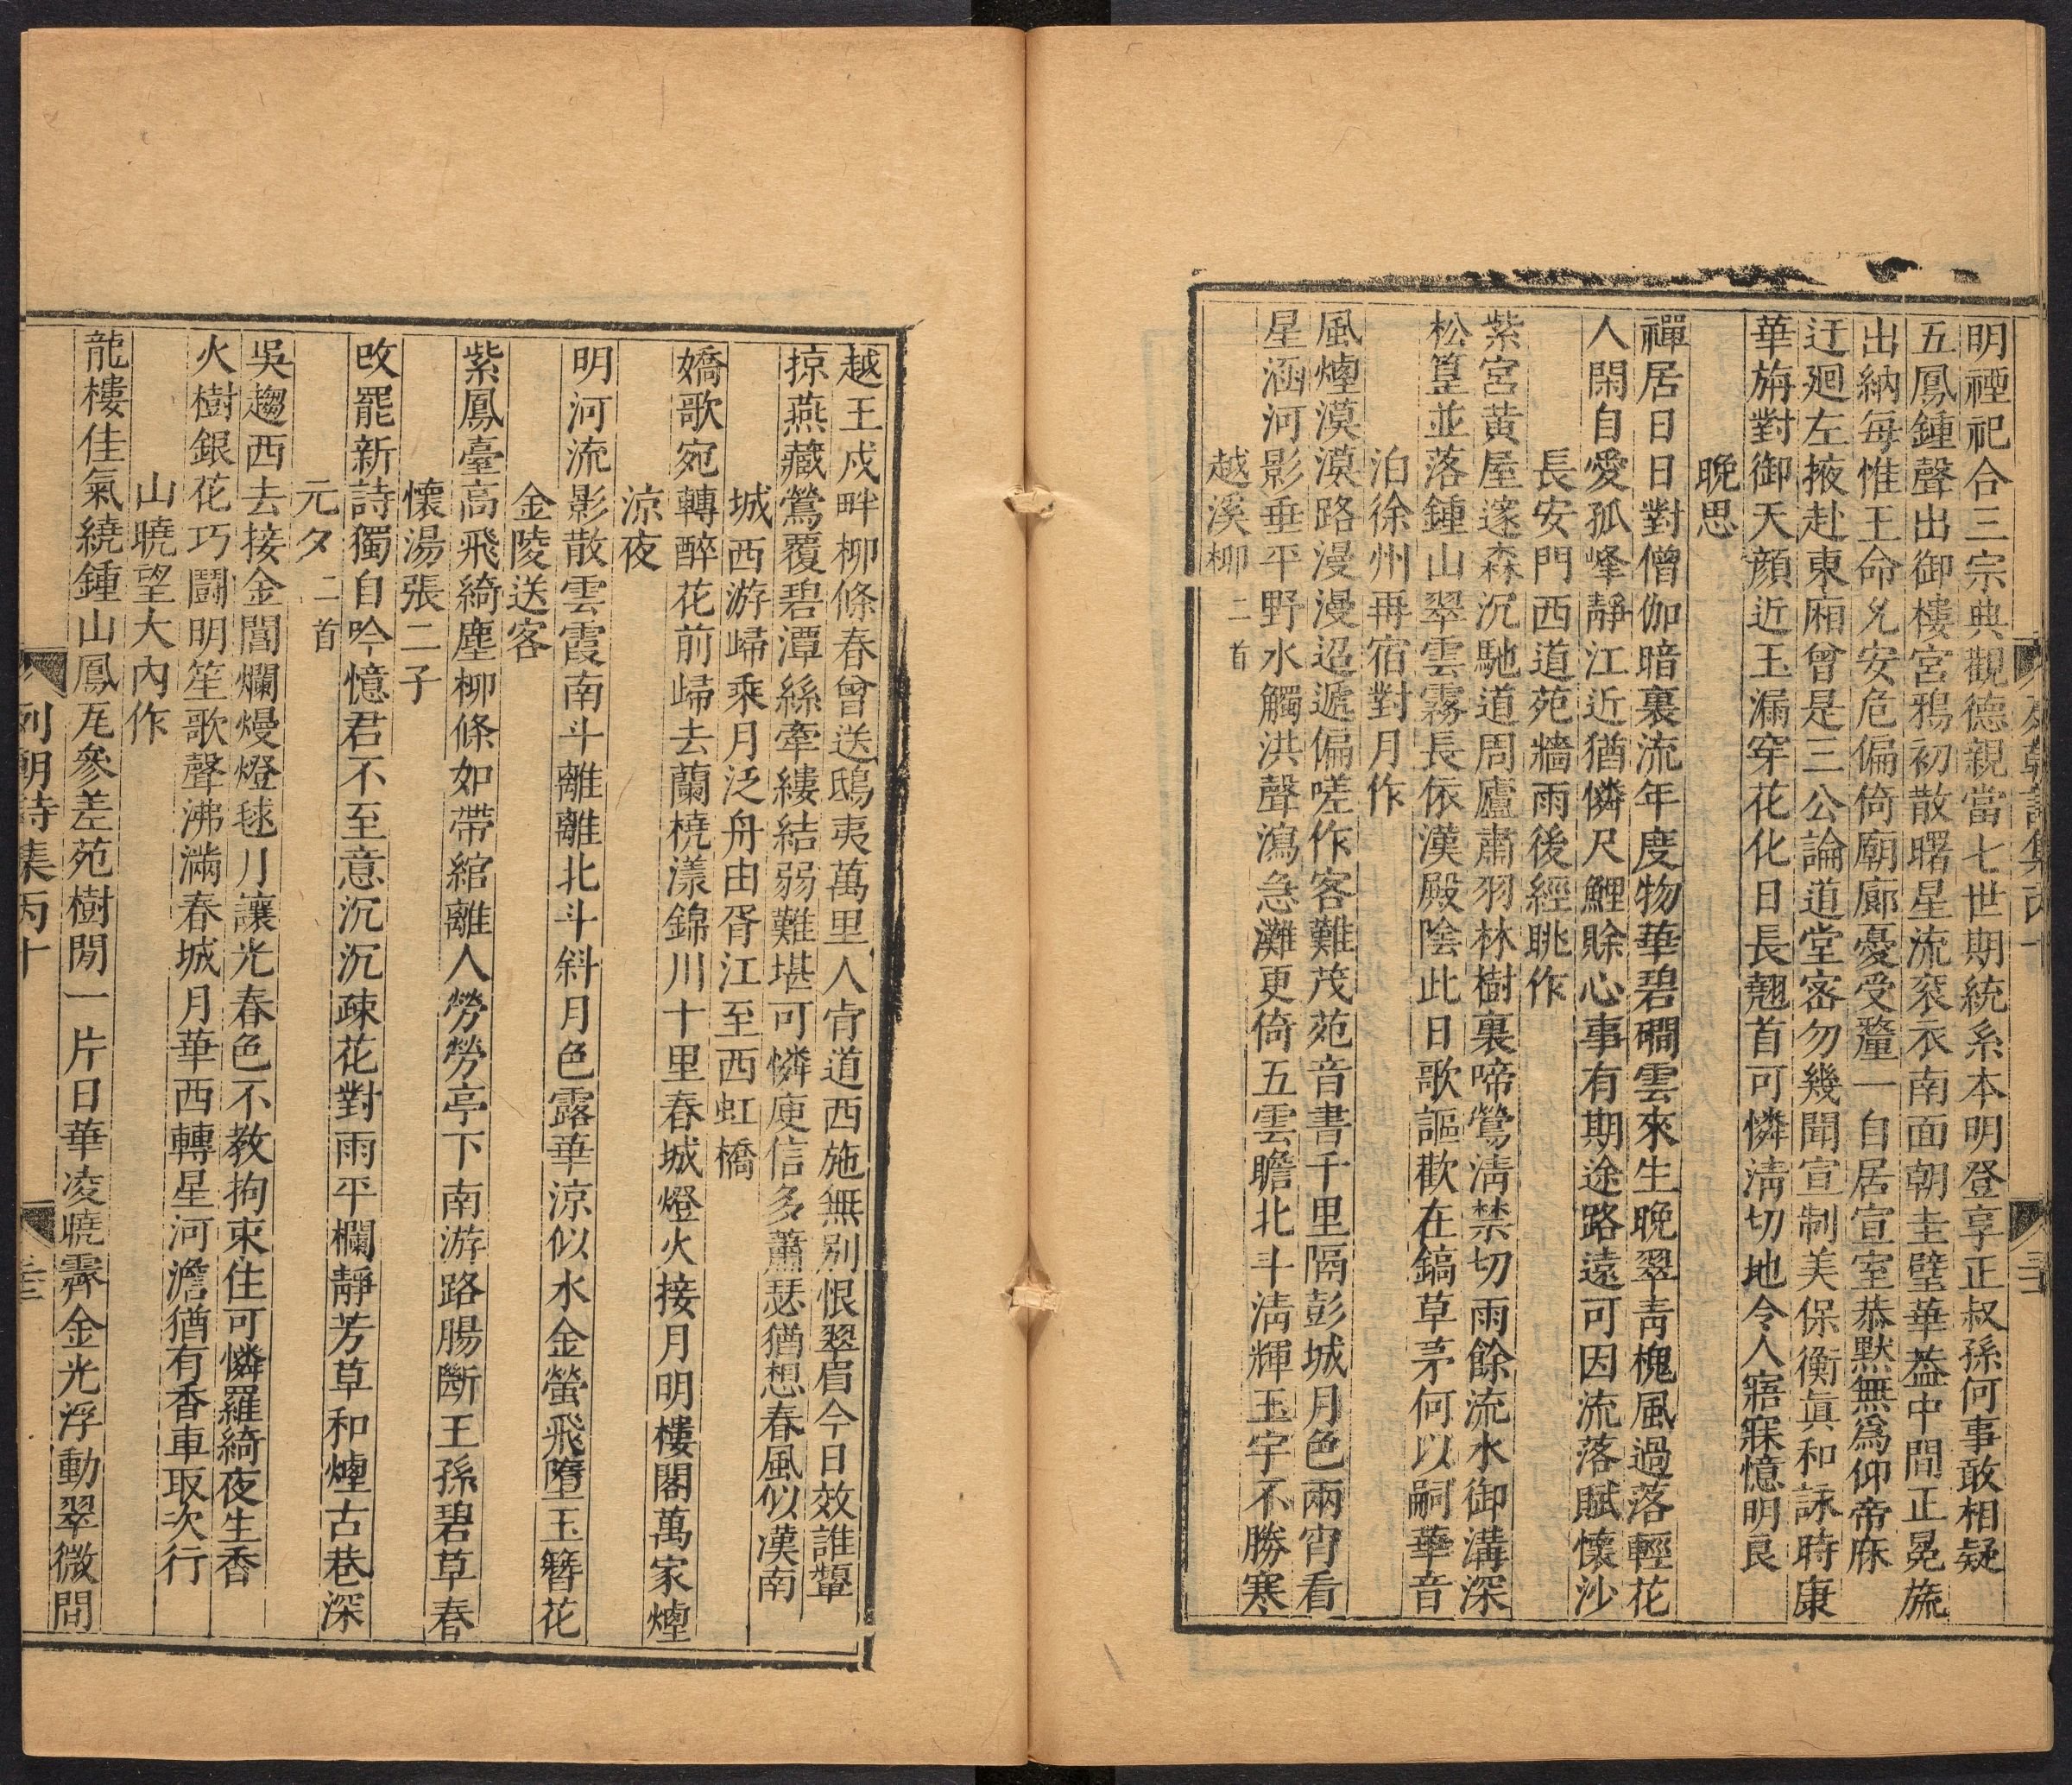 明禋祀合三宗典觀德親當七世期統系本明登享正叔孫何事敢相疑
五鳳鍾聲出御樓宮鴉初散曙星流袞衣南面朝圭璧華葢中間正冕旒
出納每惟王命允安危偏倚廟廊憂受釐一自居宣室恭默無爲仰帝庥
迂廻左掖赴東廂曾是三公論道堂密勿幾聞宣制美保衡眞和詠時康
華旃對御天顔近玉漏穿花化日長翹首可憐淸切地令人寤寐憶明良
晚思
禪居日日對僧伽暗裏流年度物華碧磵雲來生晚翠靑槐風過落輕花
人閑自愛孤峰靜江近猶憐尺鯉賒心事有期途路遠可因流落賦懷沙
長安門西道苑牆雨後經眺作
紫宮黃屋邃森沉馳道周廬肅羽林樹裏啼鶯淸禁切雨餘流水御溝深
松篁並落鍾山翠雲霧長依漢殿陰此日歌謳歡在鎬草茅何以嗣華音
泊徐州再宿對月作
風煙漠漠路漫漫迢遞偏嗟作客難茂苑音書千里隔彭城月色兩宵看
星涵河影垂平野水觸洪聲瀉急灘更倚五雲瞻北斗淸輝玉宇不勝寒
越溪柳 二首
越王戍畔柳條春曾送鴟夷萬里人肯道西施無別恨翠眉今日效誰顰
掠燕藏鶯覆碧潭絲牽縷結弱難堪可憐庾信多蕭瑟猶想春風似漢南
城西游歸乘月泛舟由胥江至西虹橋
嬌歌宛轉醉花前歸去蘭橈漾錦川十里春城燈火接月明樓閣萬家煙
涼夜
明河流影散雲霞南斗離離北斗斜月色露華涼似水金螢飛墮玉簪花
金陵送客
紫鳳臺高飛綺塵柳條如帶綰離人勞勞亭下南游路腸斷王孫碧草春
懷湯張二子
改罷新詩獨自吟憶君不至意沉沉疎花對雨平欄靜芳草和煙古巷深
元夕 二首
吳趨西去接金閶爛熳燈毬月讓光春色不教拘束住可憐羅綺夜生香
火樹銀花巧鬪明笙歌聲沸滿春城月華西轉星河澹猶有香車取次行
山曉望大內作
龍樓佳氣繞鍾山鳳瓦參差苑樹閒一片日華凌曉霽金光浮動翠微間
列朝詩集丙十